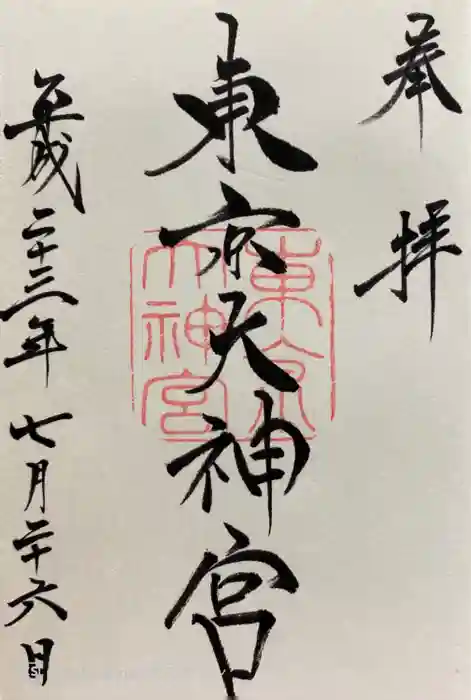 奉拝
東京大神宮
東京
大神宮
平成二十三年七月二十六日